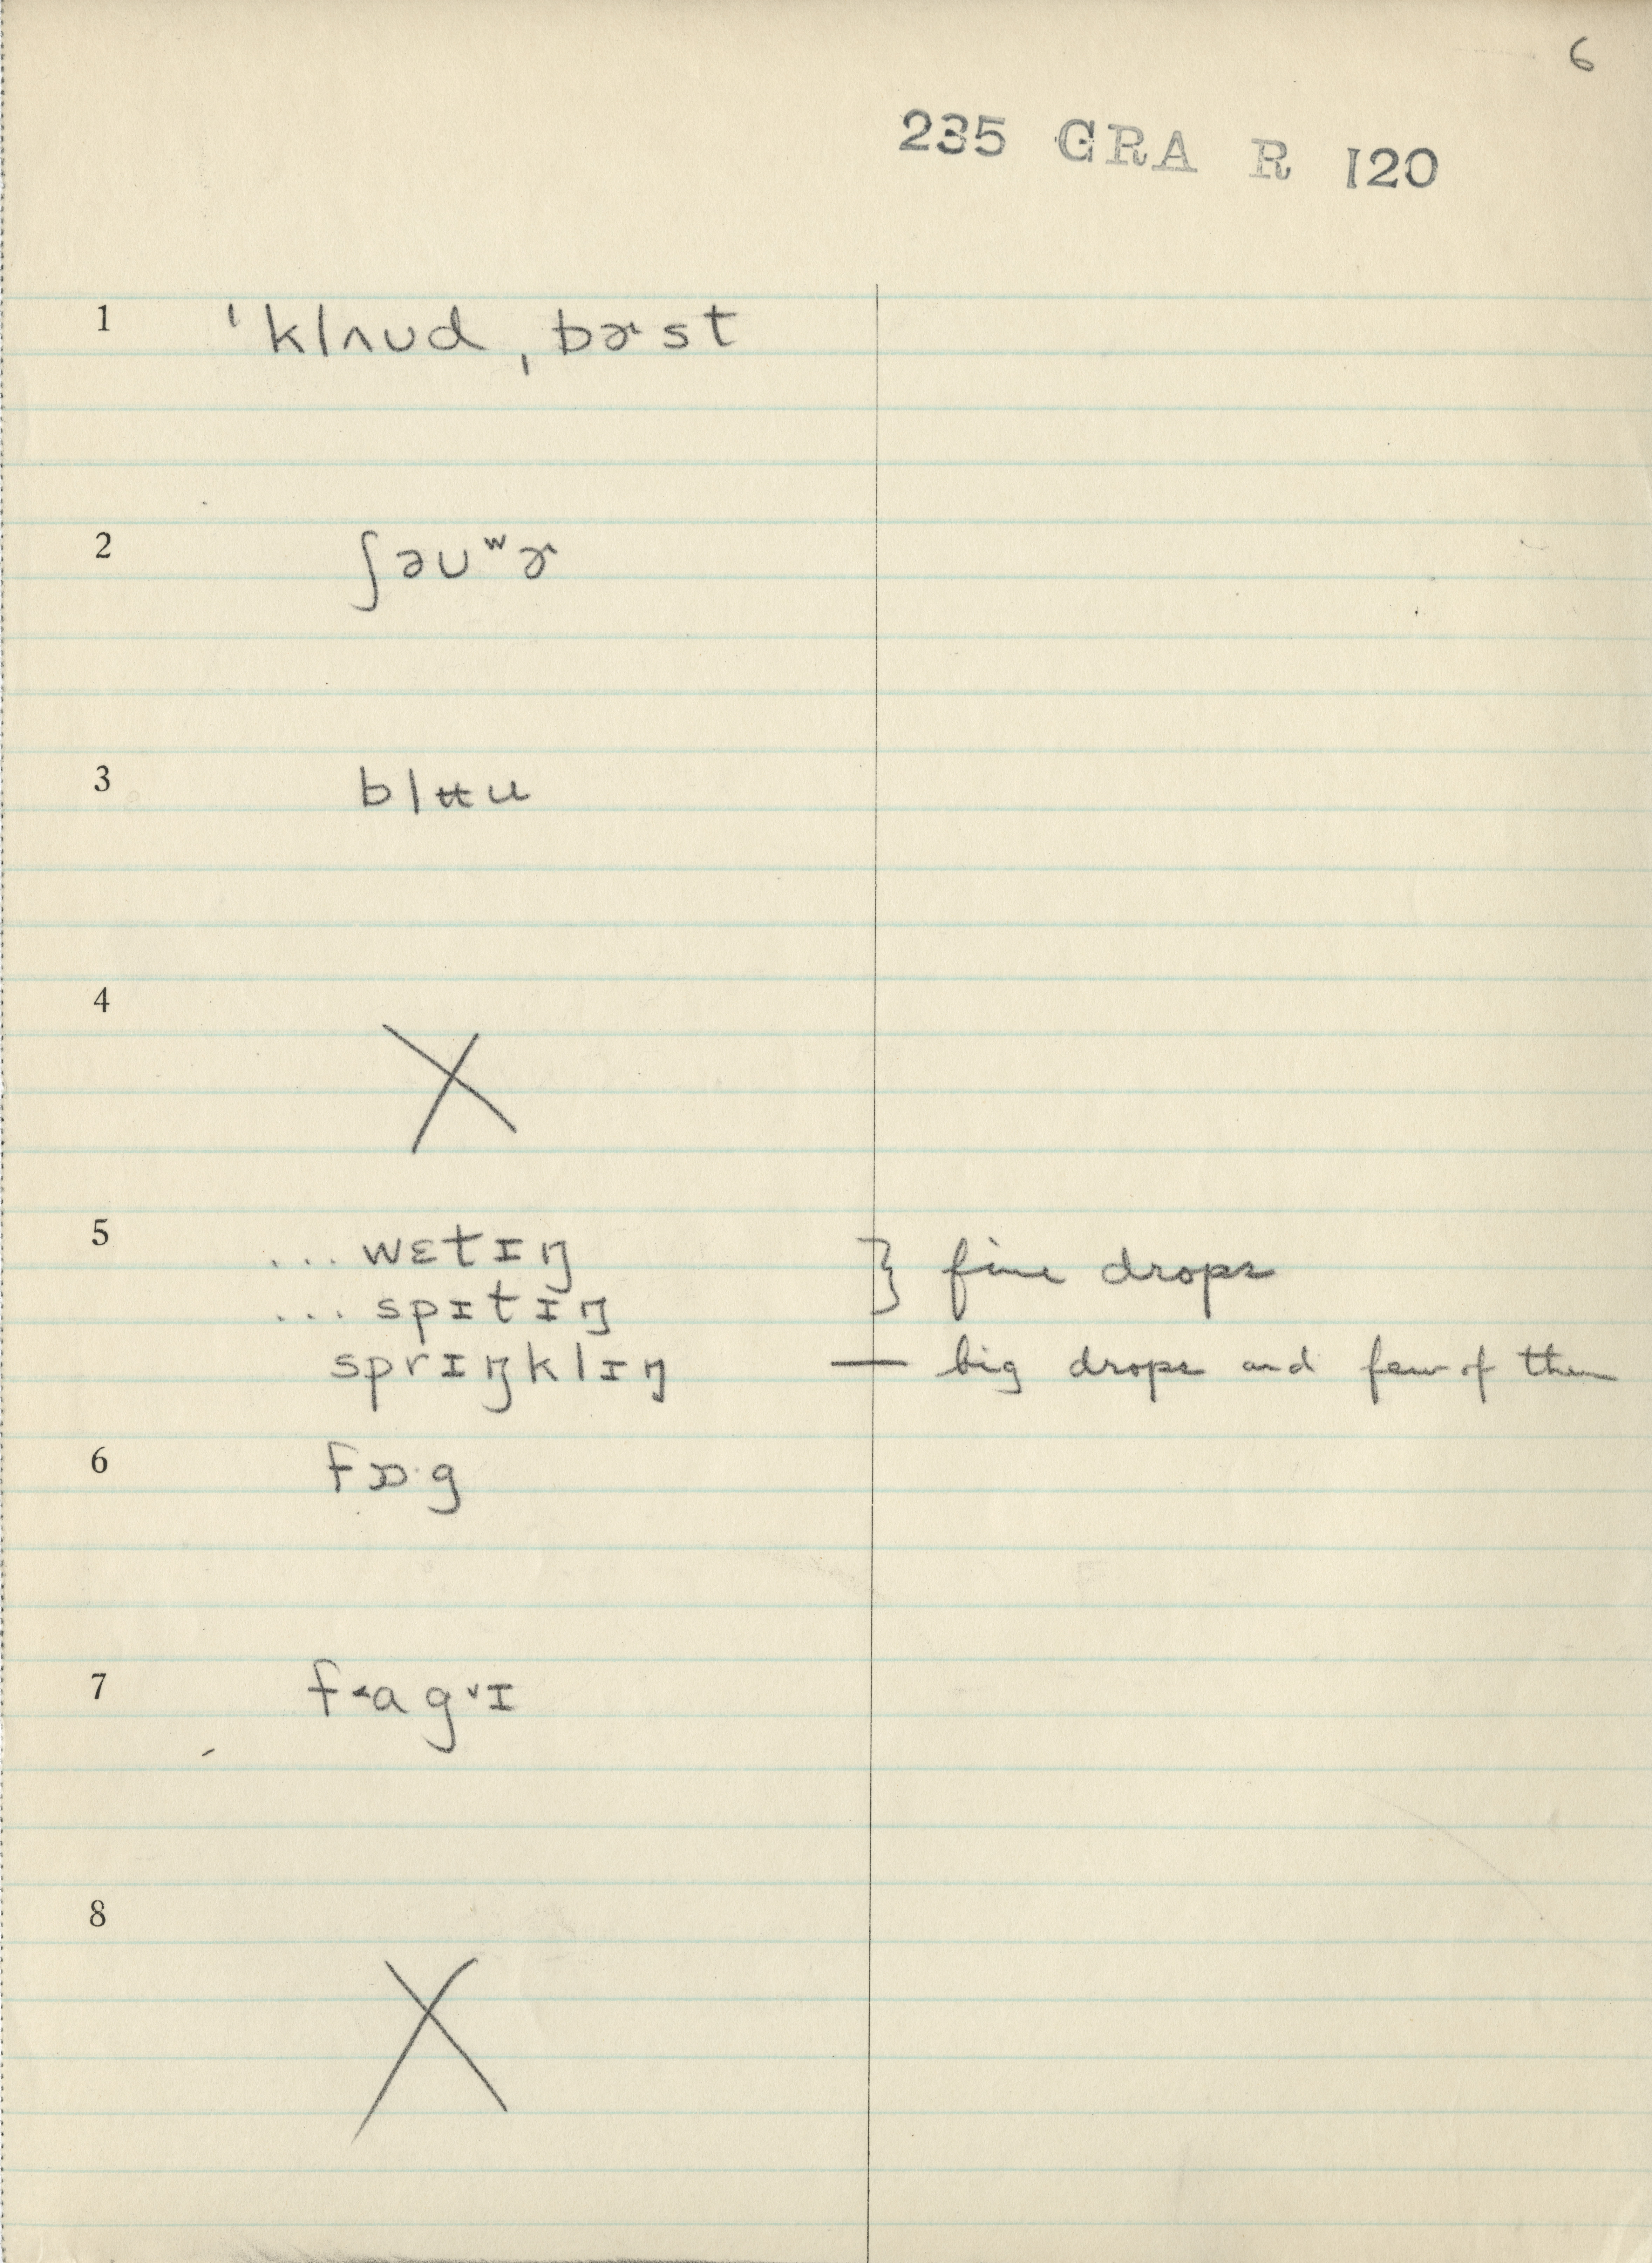 6
235 GRA R 120
1 ˈklʌʊd ˌbɚst
2 ʃəʊʷɚ
3 blʉu
4 X
5 ...wɛtɪŋ } fine drops
...spɪtɪŋ
sprɪŋklɪŋ — big drops and few of them
6 fɒ·g
7 f˂agˇɪ
8 X